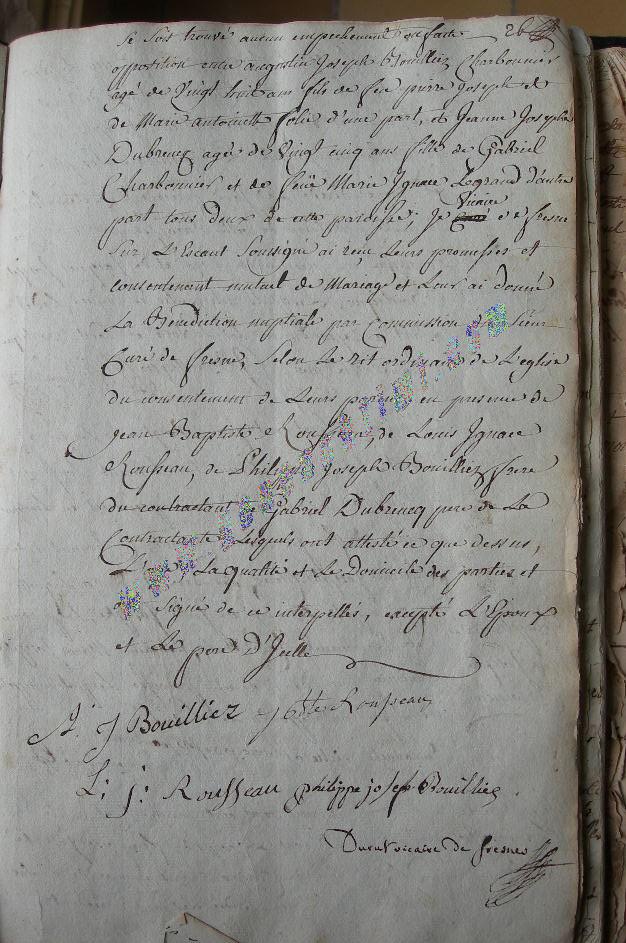 26
se soit trouvé aucun empechement ou faite
opposition entre augustin Joseph Bouilliez Charbonnier
agé de Vingt huit ans fils de feu pierre Joseph et
de Marie antoinette folie d'une part, et Jeanne Josephe
Dubrencq agée de Vingt cinq ans fille de Gabriel
Charbonnier et de feüe Marie Ignace Legrand d'autre
part tous deux de cette paroisse; Je Vicaire de fresne
Sur L'Escaut Soussigné ai reçu Leurs promesses et
consentement mutuel de Mariage et Leur ai donné
La Benediction nuptiale par Commission du Sieur
Curé de fresne, Selon Le rit ordinaire de L'eglise
du consentement de Leurs parens en presence de
jean Baptiste Rousseau, de Louis Ignace
Rousseau, de Philippe Joseph Bouilliez frere
du contractant de Gabriel Dubrencq pere de La
Contractante Lesquels ont attesté ce que dessus,
L'age, La qualité et Le Domicile des parties et
ont Signé de ce interpellés, excepté L'Epoux
et Le pere d'Icelle
A: J Bouilliez j bte Rousseau
L: j: Rousseau philippe joseph Bouilliez
vicaire de fresnes